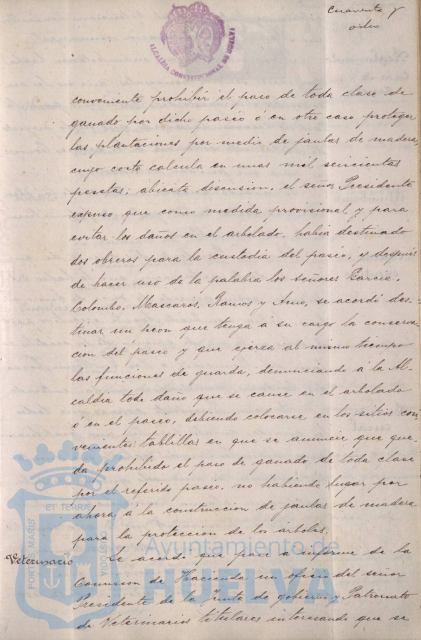 Cuarenta y
ocho
ALCALDIA CONSTITUCIONAL DE HUELVA
conveniente prohibir el paso de toda clase de
ganado por dicho paseo ó en otro caso proteger
las plantaciones por medio de jaulas de madera,
cuyo corte calcula en unas mil seiscientas
pesetas; abierta discusion, el señor Presidente
expuso que como medida provisional y para
evitar los daños en el arbolado, habia destinado
dos obreros para la custodia del paseo, y despues
de hacer uso de la palabra los señores Garcia,
Colombo, Mascaros, Ramos y se acordó des-
tinar un peon que tenga á su cargo la conserva-
cion del paseo y que ejerza al mismo tiempo
las funciones de guarda, denunciando á la Al-
caldia todo daño que se cause en el arbolado
ó en el paseo, debiendo colocarse en los sitios con-
venientes tablillas en que se anuncie que que-
da prohibido el paso de ganado de toda clase
por el referido paseo, no habiendo lugar por
ahora á la construccion de jaulas de madera
para la proteccion de los arboles.
Veterinario Se acordó que pase á informe de la
Comision de Hacienda un oficio del señor
Presidente de la Junta de gobierno y Patronato
de Veterinarios titulares interesando que se
PORTUS MARIS ET TERRIS CUSTODIA
Ayuntamiento de
HUELVA